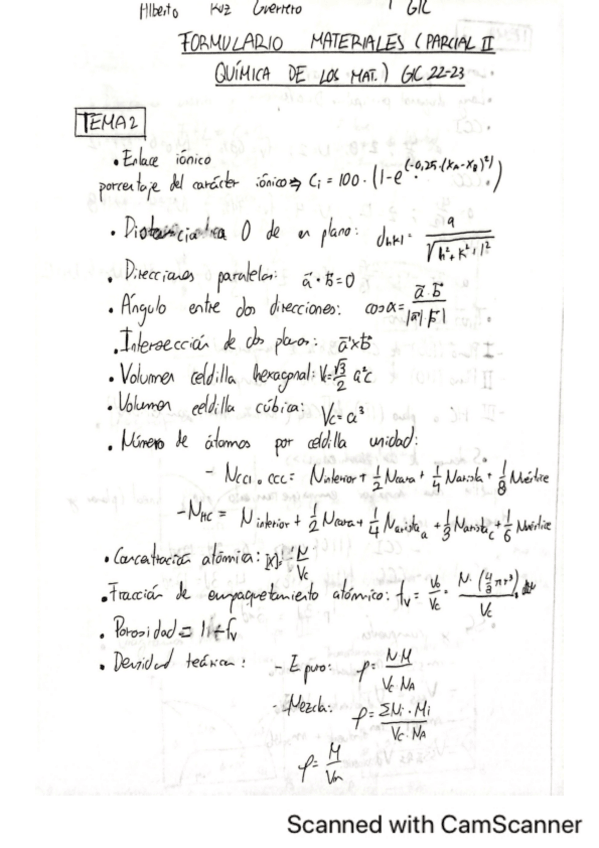 Alberto Ruz Guerrero 1 GIC
FORMULARIO MATERIALES (PARCIAL II
QUÍMICA DE LOS MAT.) GIC 22-23
TEMA 2
• Enlace iónico
porcentaje del carácter iónico ⇒ Ci = 100 · (1-e^(-0,25·(XA-XB)²))
• Distancia a 0 de un plano: dhkl = a/√(h²+k²+l²)
• Direcciones paralelas: a⃗ · b⃗ = 0
• Ángulo entre dos direcciones: cosα = a⃗·b⃗/|a⃗|·|b⃗|
• Intersección de dos planos: a⃗ x b⃗
• Volumen celdilla hexagonal: V = √3/2 a²c
• Volumen celdilla cúbica: Vc = a³
• Número de átomos por celdilla unidad:
- NCCI o CCC = Ninterior + 1/2 Ncara + 1/4 Narista + 1/8 Nvértice
- NHC = Ninterior + 1/2 Ncara + 1/4 Narista a + 1/3 Narista c + 1/6 Nvértice
• Concentración atómica: [x] = N/Vc
• Fracción de empaquetamiento atómico: fv = Vo/Vc = N·(4/3 πr³)/Vc
• Porosidad = 1 - fv
• Densidad teórica: - E puro: ρ = NM/Vc·NA
- Mezcla: ρ = ΣNi·Mi/Vc·NA
ρ = M/Vm
Scanned with CamScanner